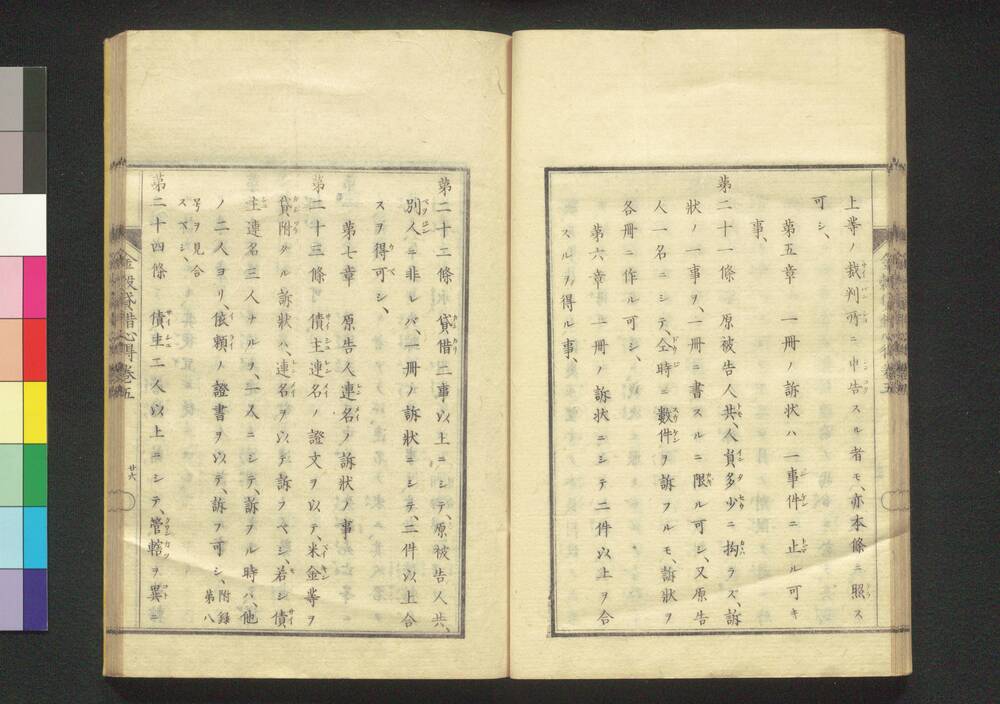 上等ノ裁判所ニ申告スル者モ、亦本條ニ照ス
可シ、
第五章　一冊ノ訴状ハ一事件ニ止ル可キ
事、
第二十一條　原被告人共、人員多少ニ拘ラズ、訴
状ノ一事ヲ、一冊ニ書スルニ限ル可シ、又原告
人一名ニシテ、仝時ニ數件ヲ訴フルモ、訴状ヲ
各冊ニ作ル可シ、
第六章　一冊ノ訴状ニシテ二件以上ヲ合
スルヲ得ル事、
第二十二條　貸借二事以上ニシテ、原被告人共、
別人ニ非レバ、一冊ノ訴状ニシテ、二件以上合
スヲ得可シ、
第七章　原告人連名ノ訴状ノ事、
第二十三條　債主連名ノ證文ヲ以テ、米金等ヲ
貸附タル訴状ハ、連名ヲ以テ訴フベシ、若シ債
主連名三人ナルヲ、一人ニシテ、訴フル時バ、他
ノ二人ヨリ、依頼ノ證書ヲ以テ、訴フ可シ、附録第八
号ヲ見合
スベシ、
第二十四條　債主二人以上ニシテ、管轄ヲ異ニ
金穀貸借心得卷五
廿六